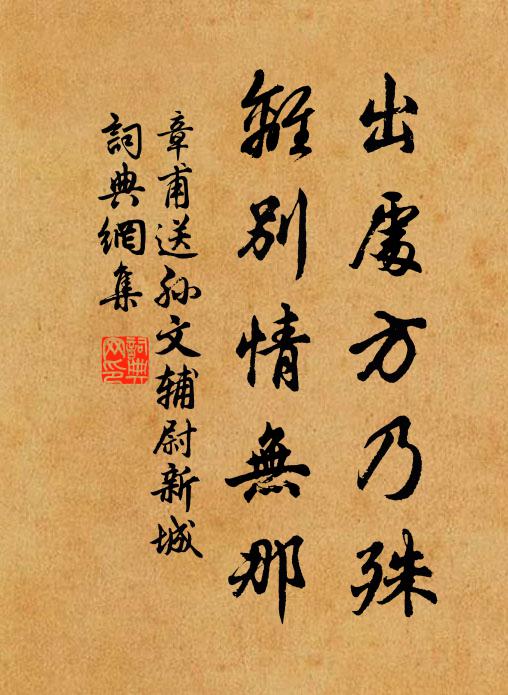 出處方乃殊
離別情無那
章甫送孙文辅尉新城
詞典網集
詞典網印